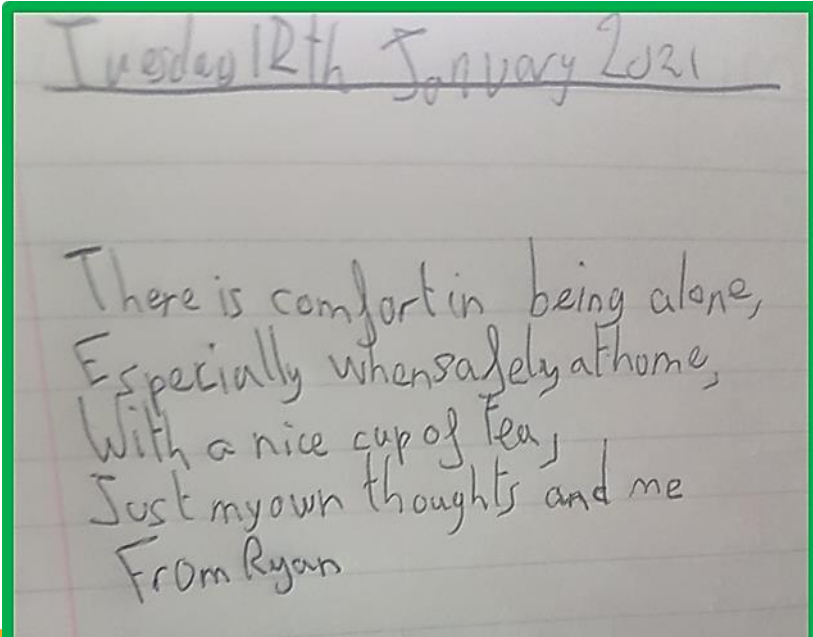 Tuesday 12th January 2021
There is comfort in being alone,
Especially when safely at home,
With a nice cup of tea,
Just my own thoughts and me
From Ryan